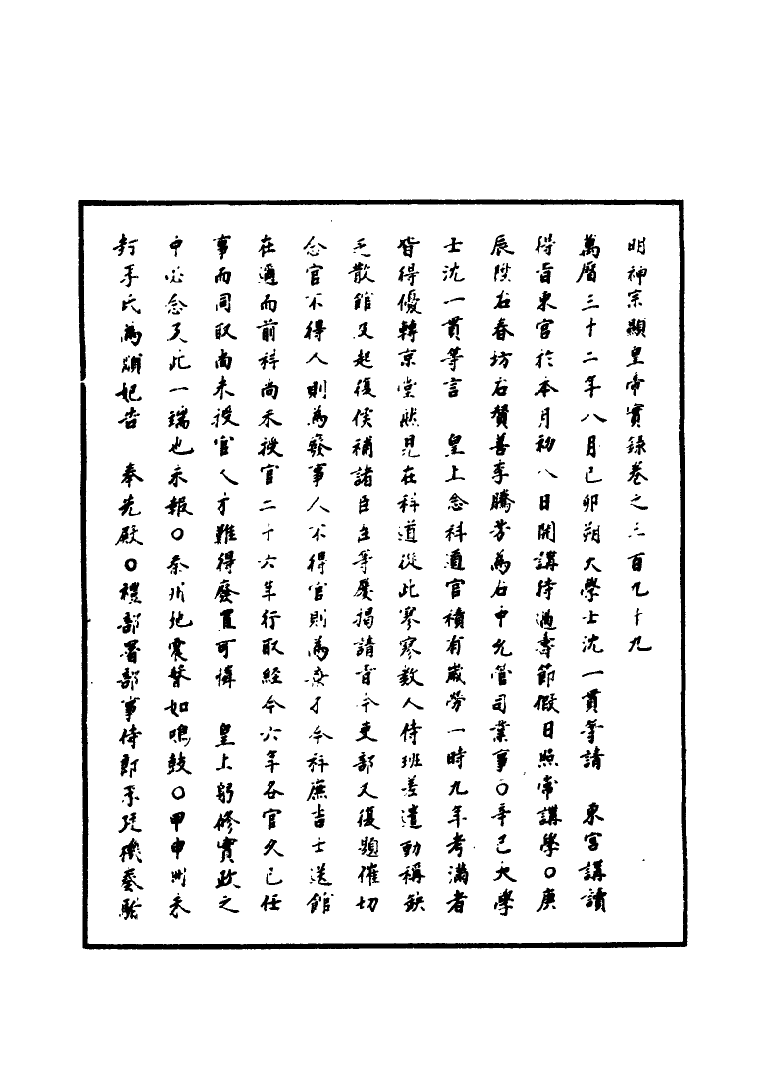 明神宗顯皇帝實錄卷之三百九十九
萬曆三十二年八月己卯朔大學士沈一貫等請　東宮講讀
得旨東宮於本月初八日開講待過壽節假日照常講學○庚
辰陞右春坊右贊善李騰芳為右中允管司業事○辛巳大學
士沈一貫等言　皇上念科道官積有歲勞一時九年考滿者
皆得優轉京堂然見在科道從此寥寥數人侍班差遣動稱缺
乏散館及起復俟補諸臣臣等屢揭請旨今吏部又復題催切
念官不得人則為廢事人不得官則為棄才今科庶吉士送館
在邇而前科尚未授官二十六年行取經今六年各官久已任
事而同取尚未授官人才難得廢置可惜　皇上躬修實政之
中必念及此一端也未報○秦州地震聲如鳴鼓○甲申以未
封李氏為順妃告　奉先殿○禮部署部事侍郎李廷機參駱